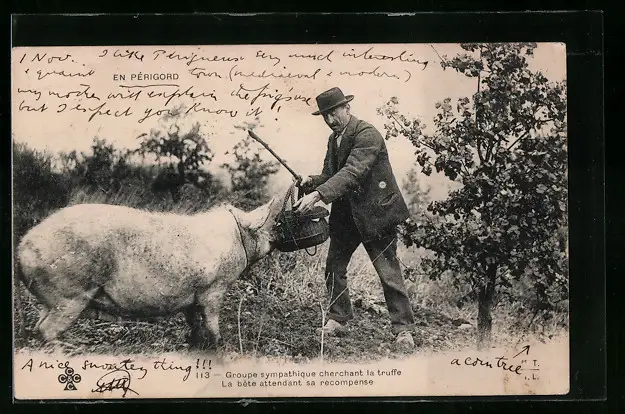 1 Nov. I like Périgueux very much interesting
& quaint town (mediæval & modern)
EN PÉRIGORD
my mother will explain the pigs
but I expect you know it!
A nice snoutey thing!!!
a corn tree
113 – Groupe sympathique cherchant la truffe
La bête attendant sa recompense
M.T.
I.L.